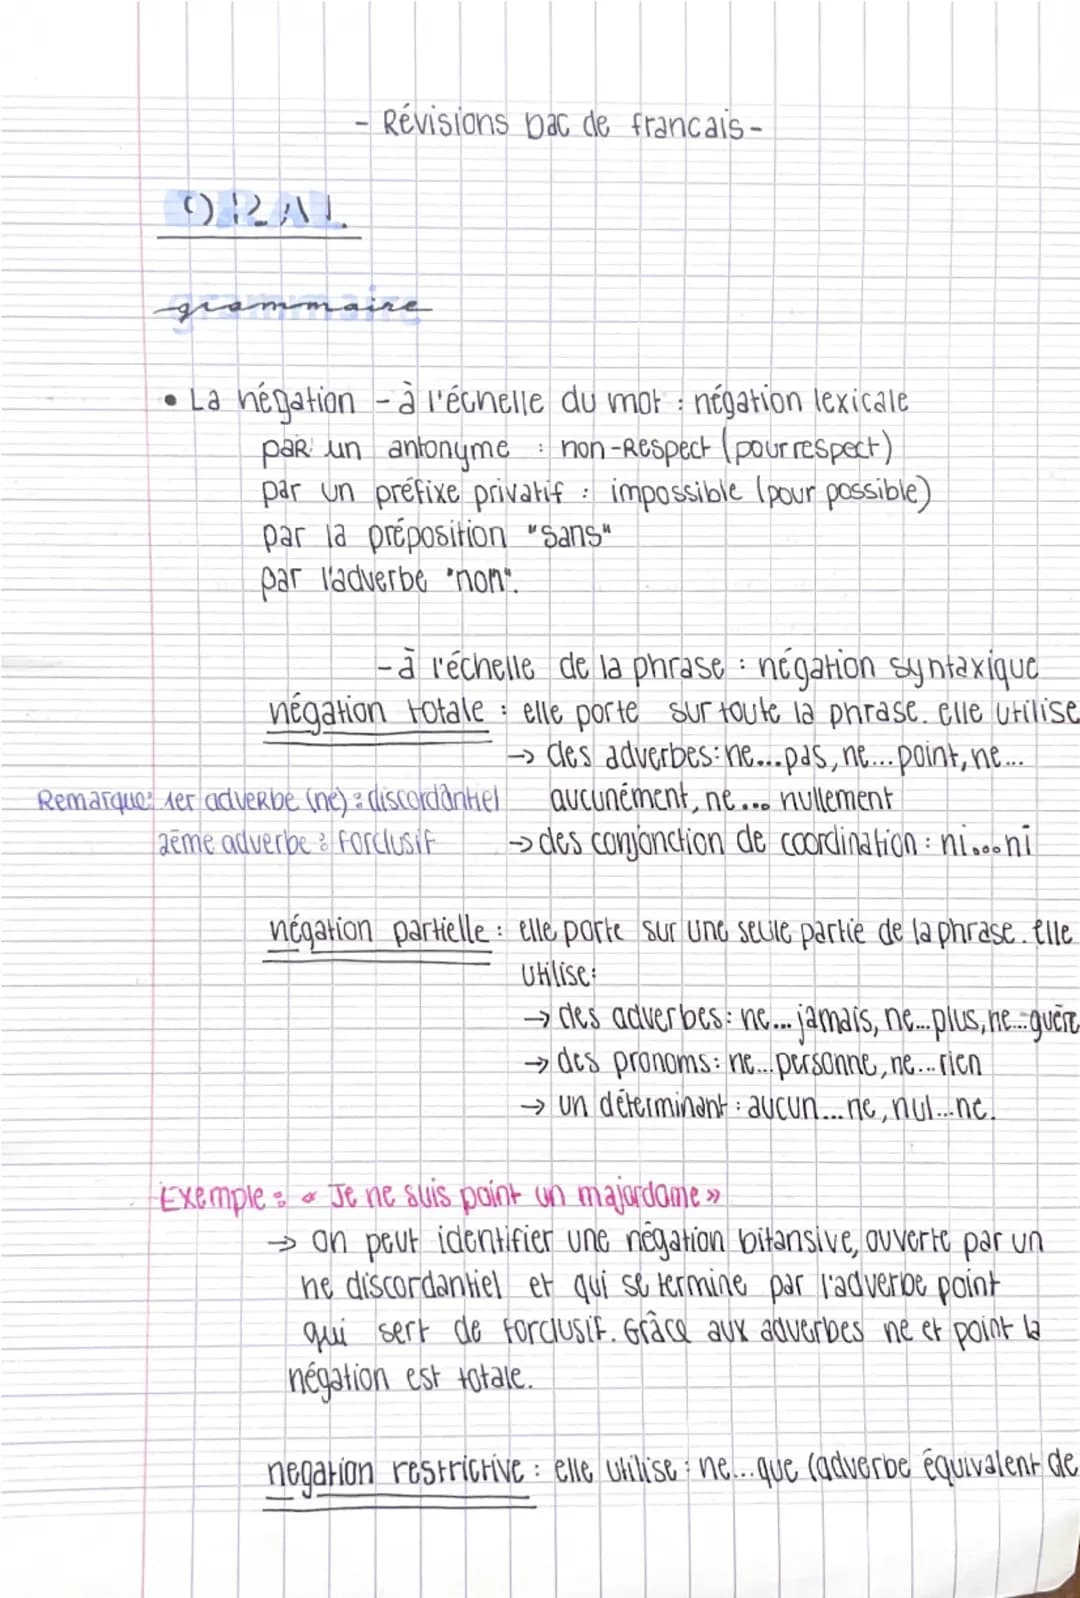 - Révisions bac de francais -
ORAL
grammaire
• La négation - à l'échelle du mot : négation lexicale
par un antonyme : non-respect (pour respect)
par un préfixe privatif : impossible (pour possible)
par la préposition "sans"
par l'adverbe "non".
- à l'échelle de la phrase : négation syntaxique
négation totale : elle porte sur toute la phrase. elle utilise
→ des adverbes : ne...pas, ne...point, ne...
Remarque : 1er adverbe (ne) : discordantiel aucunément, ne... nullement
2ème adverbe : forclusif → des conjonction de coordination : ni....ni
négation partielle : elle porte sur une seule partie de la phrase. Elle
utilise :
→ des adverbes : ne... jamais, ne...plus, ne...guère
→ des pronoms : ne...personne, ne...rien
→ un déterminant : aucun...ne, nul...ne.
Exemple : « Je ne suis point un majordome »
→ on peut identifier une négation bitansive, ouverte par un
ne discordantiel et qui se termine par l'adverbe point
qui sert de forclusif. Grâce aux adverbes ne et point la
négation est totale.
negation restrictive : elle utilise : ne...que (adverbe équivalent de